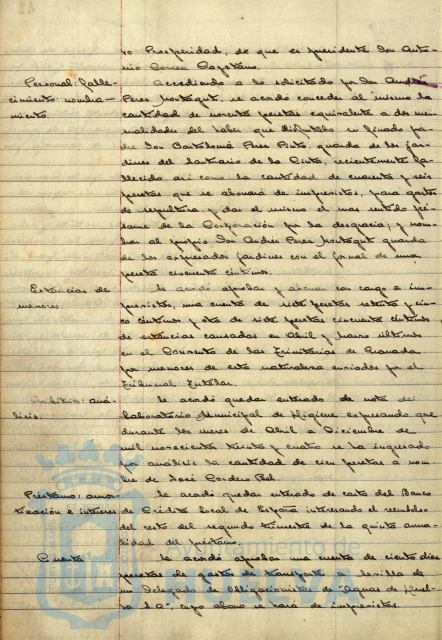 ro Prosperidad, de que es presidente Don Anto-
nio Correa Cayetano.
Personal: falle-
cimiento: nombra-
miento.
Accediendo a lo solicitado por Don Andrés
Peres Montagut, se acordó conceder al mismo la
cantidad de noventa pesetas equivalente a dos men-
sualidades del haber que disfrutaba su finado pa-
dre Don Bartolomé Peres Pinto, guarda de los jar-
dines del Santuario de la Cinta, recientemente fa-
llecido, así como la cantidad de cuarenta y seis
pesetas que se abonará de imprevistos, para gastos
de sepultura y dar el mismo el mas sentido pé-
same de la Corporación por la desgracia; y nom-
brar al propio Don Andrés Peres Montagut guarda
de los expresados jardines con el jornal de una
peseta cincuenta céntimos.
Estancias de
menores.
Se acordó aprobar y abonar con cargo a im-
previstos, una cuenta de siete pesetas setenta y cin-
co céntimos y otra de siete pesetas cincuenta céntimos
de estancias causadas en Abril y Marzo últimos
en el Convento de las Trinitarias de Granada
por menores de esta naturaleza enviados por el
Tribunal Tutelar.
Arbitrios: aná-
lisis.
Se acordó quedar enterado de nota del
Laboratorio Municipal de Higiene expresando que
durante los meses de Abril a Diciembre de
mil novecientos treinta y cuatro se ha ingresado
por análisis la cantidad de cien pesetas a nom-
bre de José Cordero Bel.
Préstamo: amor-
tización e intereses
Se acordó quedar enterado de carta del Banco
de Crédito Local de España interesando el reembolso
del resto del segundo trimestre de la quinta anua-
lidad del préstamo.
Cuenta
Se acordó aprobar una cuenta de ciento diez
pesetas de gastos de transporte a Sevilla de
un Delegado de Obligacionistas de "Aguas de Huel-
va S.A." cuyo abono se hará de imprevistos.
Ayuntamiento de
HUELVA